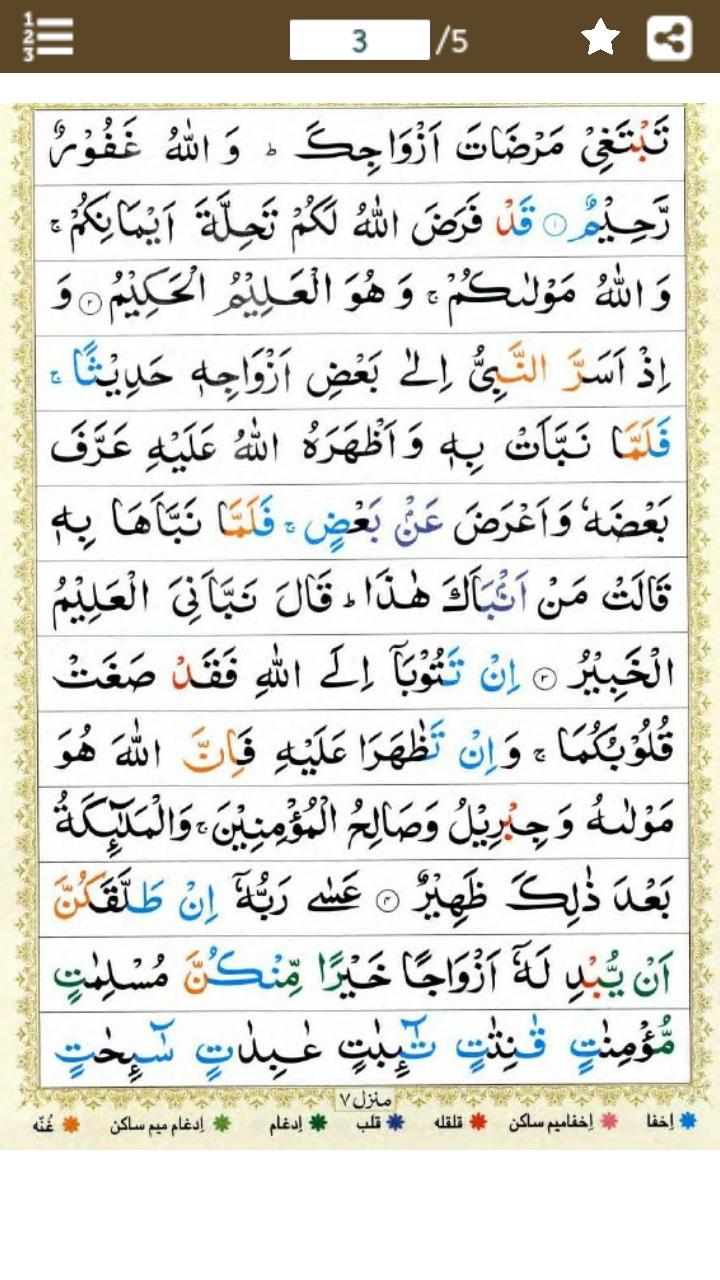 1
2
3
3
/5
تَبْتَغِيْ مَرْضَاتَ اَزْوَاجِكَ ؕ وَ اللّٰهُ غَفُوْرٌ
رَّحِيْمٌ ۝۱ قَدْ فَرَضَ اللّٰهُ لَكُمْ تَحِلَّةَ اَيْمَانِكُمْ ۚ
وَ اللّٰهُ مَوْلٰىكُمْ ۚ وَ هُوَ الْعَلِيْمُ الْحَكِيْمُ ۝۲ وَ
اِذْ اَسَرَّ النَّبِيُّ اِلٰى بَعْضِ اَزْوَاجِهٖ حَدِيْثًا ۚ
فَلَمَّا نَبَّاَتْ بِهٖ وَ اَظْهَرَهُ اللّٰهُ عَلَيْهِ عَرَّفَ
بَعْضَهٗ وَ اَعْرَضَ عَنْۢ بَعْضٍ ۚ فَلَمَّا نَبَّاَهَا بِهٖ
قَالَتْ مَنْ اَنْۢبَاَكَ هٰذَا ؕ قَالَ نَبَّاَنِيَ الْعَلِيْمُ
الْخَبِيْرُ ۝۳ اِنْ تَتُوْبَاۤ اِلَى اللّٰهِ فَقَدْ صَغَتْ
قُلُوْبُكُمَا ۚ وَ اِنْ تَظٰهَرَا عَلَيْهِ فَاِنَّ اللّٰهَ هُوَ
مَوْلٰىهُ وَ جِبْرِيْلُ وَ صَالِحُ الْمُؤْمِنِيْنَ ۚ وَ الْمَلٰٓئِكَةُ
بَعْدَ ذٰلِكَ ظَهِيْرٌ ۝۴ عَسٰى رَبُّهٗۤ اِنْ طَلَّقَكُنَّ
اَنْ يُّبْدِ لَهٗۤ اَزْوَاجًا خَيْرًا مِّنْكُنَّ مُسْلِمٰتٍ
مُّؤْمِنٰتٍ قٰنِتٰتٍ تٰٓئِبٰتٍ عٰبِدٰتٍ سٰٓئِحٰتٍ
منزل ۷
اِخفا اِخفامیم ساکن قلقله قلب اِدغام اِدغام میم ساکن غُنّه